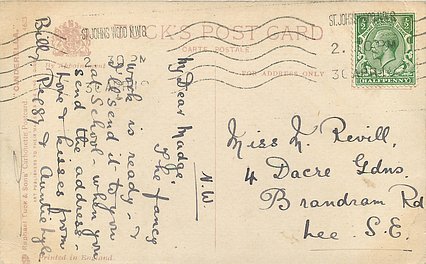 TUCK'S POST CARD
CARTE POSTALE
FOR ADDRESS ONLY
ST JOHNS WOOD N.W.8.
HALFPENNY
N.W
My Dear Madge,
The fancy
work is ready &
I'll send it to you
at School - when you
send the address.
Love & kisses from
Billy, Peggy & Auntie
Miss M. Revill,
4 Dacre Gdns.
Brandram Rd
Lee S.E.
Raphael Tuck & Sons'
Printed in England.